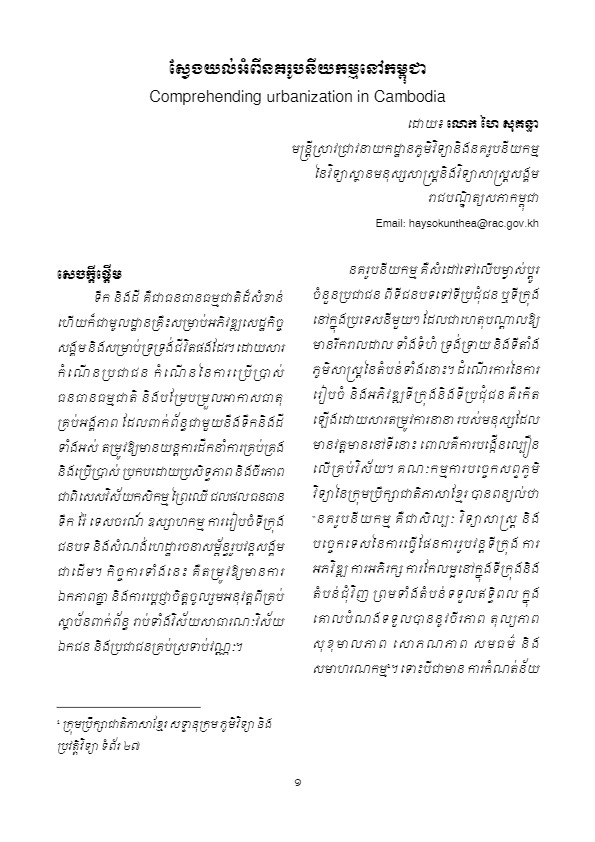 ស្វែងយល់អំពីនគរូបនីយកម្មនៅកម្ពុជា
Comprehending urbanization in Cambodia
ដោយ៖ លោក ហៃ សុគន្ធា
មន្ត្រីស្រាវជ្រាវនាយកដ្ឋានភូមិវិទ្យានិងនគរូបនីយកម្ម
នៃវិទ្យាស្ថានមនុស្សសាស្ត្រនិងវិទ្យាសាស្ត្រសង្គម
រាជបណ្ឌិត្យសភាកម្ពុជា
Email: haysokunthea@rac.gov.kh
សេចក្ដីផ្ដើម
ទឹក និងដី គឺជាធនធានធម្មជាតិដ៏សំខាន់
ហើយក៏ជាមូលដ្ឋានគ្រឹះសម្រាប់អភិវឌ្ឍសេដ្ឋកិច្ច
សង្គម និងសម្រាប់ទ្រទ្រង់ជីវិតផងដែរ។ ដោយសារ
កំណើនប្រជាជន កំណើននៃការប្រើប្រាស់
ធនធានធម្មជាតិ និងបម្រែបម្រួលអាកាសធាតុ
គ្រប់អង្គភាព ដែលពាក់ព័ន្ធជាមួយនឹងទឹកនិងដី
ទាំងអស់ តម្រូវឱ្យមានយន្តការដឹកនាំការគ្រប់គ្រង
និងប្រើប្រាស់ ប្រកបដោយប្រសិទ្ធភាព និងចីរភាព
ជាពិសេសវិស័យកសិកម្ម ព្រៃឈើ ជលផល ធនធាន
ទឹក រ៉ែ ទេសចរណ៍ ឧស្សាហកម្ម ការរៀបចំទីក្រុង
ជនបទ និងសំណង់ហេដ្ឋារចនាសម្ព័ន្ធរូបវន្តសង្គម
ជាដើម។ កិច្ចការទាំងនេះ គឺតម្រូវឱ្យមានការ
ឯកភាពគ្នា និងការប្ដេជ្ញាចិត្តចូលរួមអនុវត្តពីគ្រប់
ស្ថាប័នពាក់ព័ន្ធ រាប់ទាំងវិស័យសាធារណៈ វិស័យ
ឯកជន និងប្រជាជនគ្រប់ស្រទាប់វណ្ណៈ។
នគរូបនីយកម្ម គឺសំដៅទៅលើបម្លាស់ប្ដូរ
ចំនួនប្រជាជន ពីទីជនបទទៅទីប្រជុំជន ឬទីក្រុង
នៅក្នុងប្រទេសនីមួយៗ ដែលជាហេតុបណ្ដាលឱ្យ
មានរីករាលដាល ទាំងទំហំ ទ្រង់ទ្រាយ និងទីតាំង
ភូមិសាស្ត្រនៃតំបន់ទាំងនោះ។ ដំណើរការនៃការ
រៀបចំ និងអភិវឌ្ឍទីក្រុងនិងទីប្រជុំជន គឺកើត
ឡើងដោយសារតម្រូវការនានា របស់មនុស្សដែល
មានវត្តមាននៅទីនោះ ពោលគឺការបង្កើនល្បឿន
លើគ្រប់វិស័យ។ គណៈកម្មការបច្ចេកសព្ទភូមិ
វិទ្យានៃក្រុមប្រឹក្សាជាតិភាសាខ្មែរ បានពន្យល់ថា
“នគរូបនីយកម្ម គឺជាសិល្បៈ វិទ្យាសាស្ត្រ និង
បច្ចេកទេសនៃការធ្វើផែនការរូបវន្តទីក្រុង ការ
អភិវឌ្ឍ ការអភិរក្ស ការកែលម្អនៅក្នុងទីក្រុងនិង
តំបន់ជុំវិញ ព្រមទាំងតំបន់ទទួលឥទ្ធិពល ក្នុង
គោលបំណងទទួលបាននូវចីរភាព តុល្យភាព
សុខុមាលភាព សោភណភាព សមធម៌ និង
សមាហរណកម្ម¹។ ទោះបីជាមាន ការកំណត់ន័យ
¹ ក្រុមប្រឹក្សាជាតិភាសាខ្មែរ សទ្ទានុក្រម ភូមិវិទ្យា និង
ប្រវត្តិវិទ្យា ទំព័រ ២៧
១